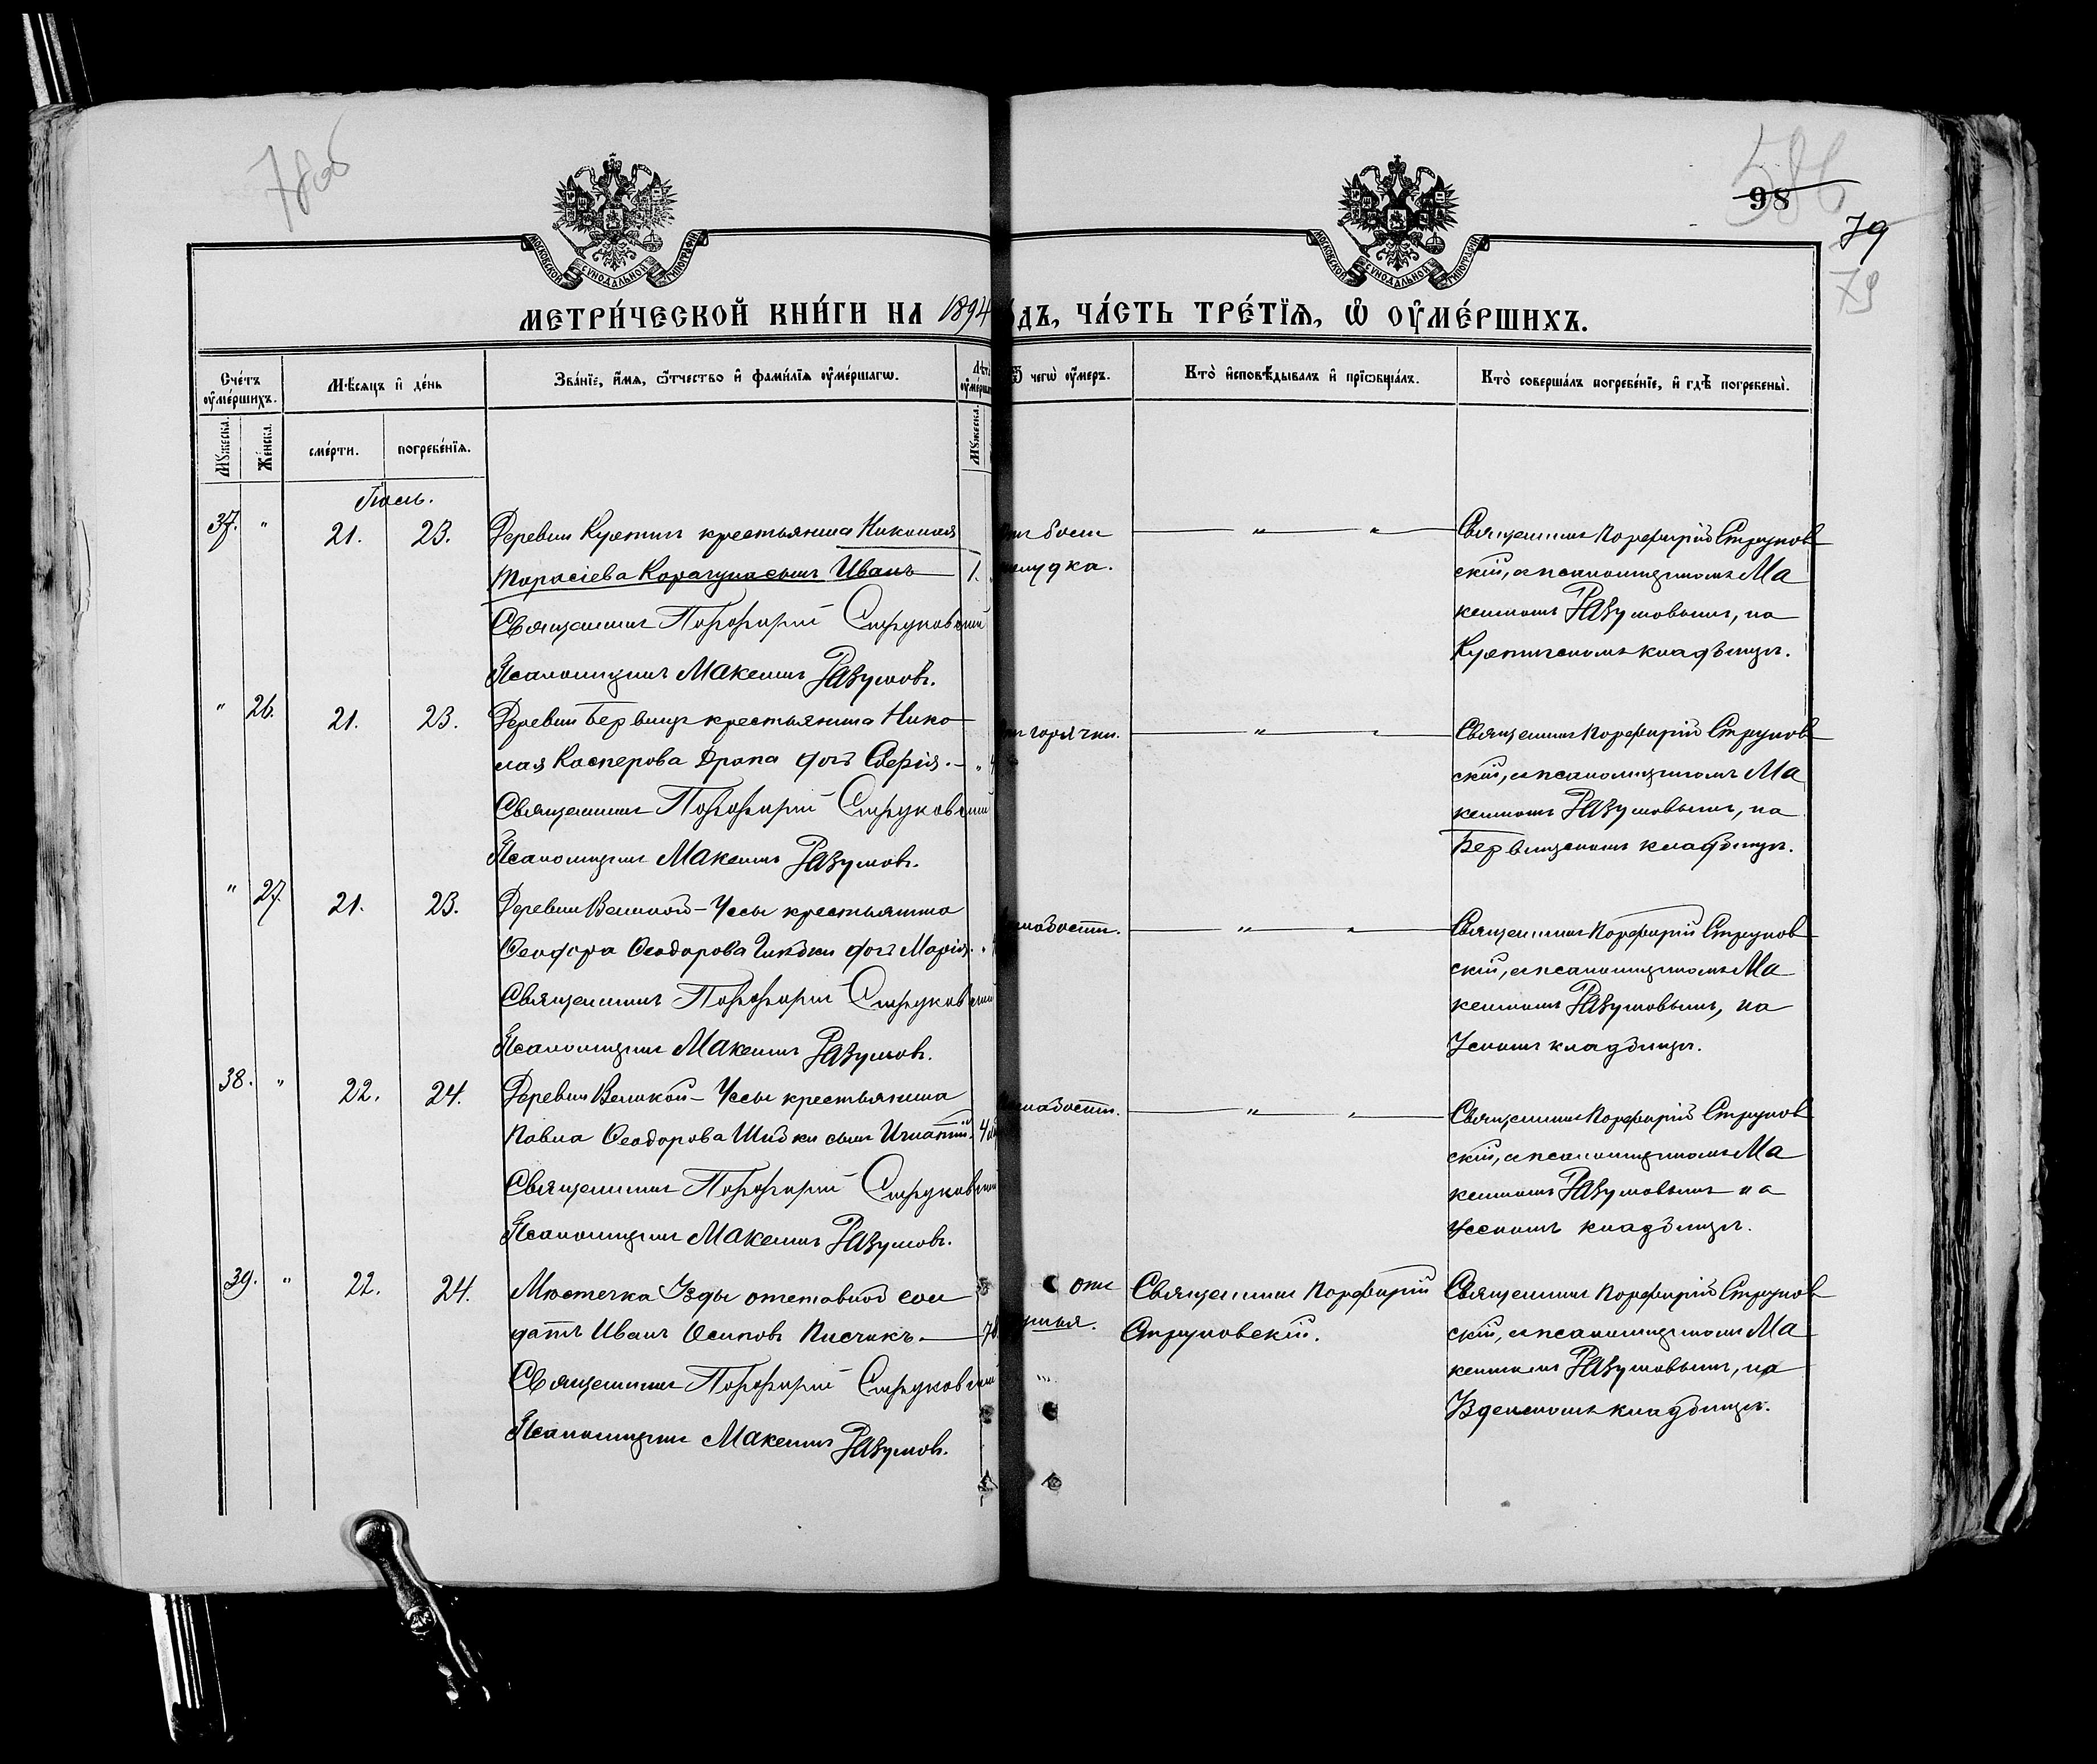 78об
98
79
79
МОСКОВСКОЙ СѴНОДАЛЬНОЙ ТИПОГРАФІИ
МОСКОВСКОЙ СѴНОДАЛЬНОЙ ТИПОГРАФІИ
МЕТРИ́ЧЕСКОЙ КНИ́ГИ НА 1894 ДЪ, ЧА́СТЬ ТРЕ́ТЇѦ, Ѡ҆ ОУ҆МЕ́РШИХЪ.
Сче́тъ оу҆ме́ршихъ.
Мѣ́сѧцъ и҆ де́нь
Зва́нїе, и҆́мѧ, ѻ҆́тчество и҆ фами́лїѧ оу҆ме́ршагѡ.
Лѣта̀ оу҆ме́рша
Ѿ чегѡ̀ оу҆́меръ.
Кто̀ и҆сповѣ́дывалъ и҆ прїѡбща́лъ.
Кто̀ соверша́лъ погребе́нїе, и҆ гдѣ̀ погребены̀.
Мꙋ́жеска.
Же́нска.
сме́рти.
погребе́нїѧ.
Мꙋ́жеска.
Іюль.
37. " 21. 23. Деревни Кухтичъ крестьянина Николая
Тарасіева Корачуна сынъ Иванъ — 1.
Священникъ Порфирій Струковскій
Псаломщикъ Максимъ Разумовъ.
отъ боли
желудка.
" "
Священникъ Порфирій Струков
скій, съ псаломщикомъ Ма
ксимомъ Разумовымъ, на
Кухтичскомъ кладбищѣ.
" 26. 21. 23. Деревни крестьянина Нико
лая Касперова Драпа дочь Софія. — "
Священникъ Порфирій Струковскій
Псаломщикъ Максимъ Разумовъ.
отъ горячки.
" "
Священникъ Порфирій Струков
скій, съ псаломщикомъ Ма
ксимомъ Разумовымъ, на
кладбищѣ.
" 27. 21. 23. Деревни Великой-Уссы крестьянина
Ѳеодора Ѳеодорова дочь Марія. "
Священникъ Порфирій Струковскій
Псаломщикъ Максимъ Разумовъ.
слабости.
" "
Священникъ Порфирій Струков
скій, съ псаломщикомъ Ма
ксимомъ Разумовымъ, на
Усскомъ кладбищѣ.
38. " 22. 24. Деревни Великой-Уссы крестьянина
Павла Ѳеодорова Шибки сынъ Игнатій. 4
Священникъ Порфирій Струковскій
Псаломщикъ Максимъ Разумовъ.
слабости.
" "
Священникъ Порфирій Струков
скій, съ псаломщикомъ Ма
ксимомъ Разумовымъ на
Усскомъ кладбищѣ.
39. " 22. 24. Мѣстечка Узды отставной сол
датъ Иванъ Осиповъ Писчикъ. — 78
Священникъ Порфирій Струковскій
Псаломщикъ Максимъ Разумовъ.
отъ
Священникъ Порфирій
Струковскій.
Священникъ Порфирій Струков
скій, съ псаломщикомъ Ма
ксимомъ Разумовымъ, на
Узденскомъ кладбищѣ.